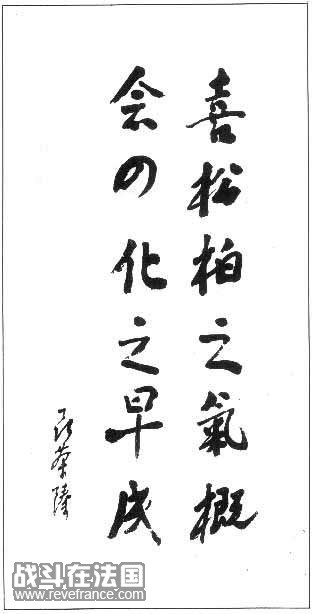 喜松柏之氣概
会四化之早成
聂荣臻
战斗在法国
www.revefrance.com